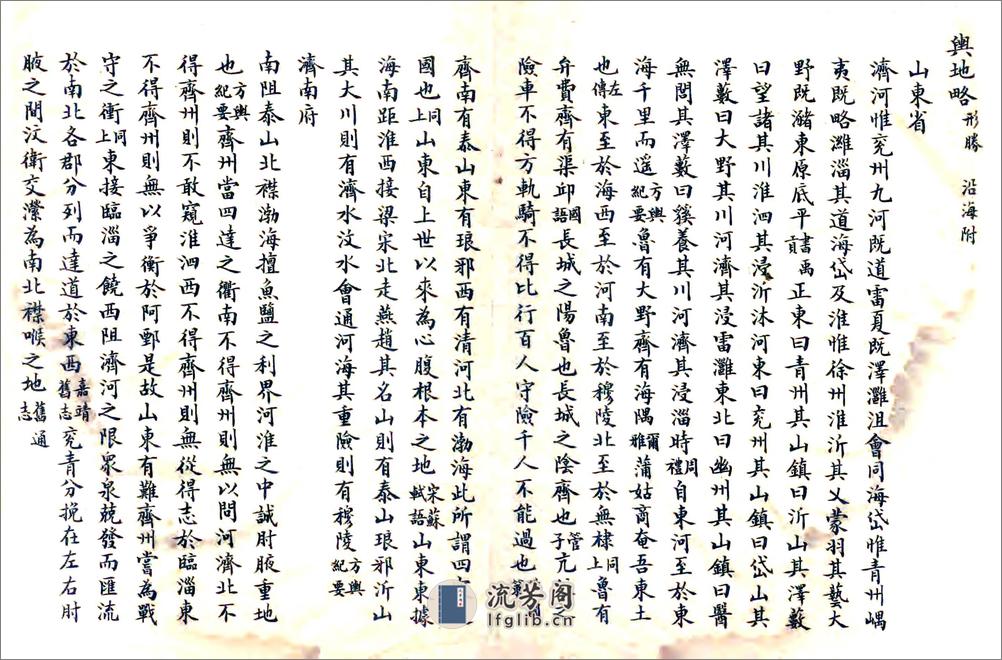 輿地略 形勝 沿海附
山東省
濟河惟兖州九河既道雷夏既澤灉沮會同海岱惟青州嵎
夷既略濰淄其道海岱及淮惟徐州淮沂其乂蒙羽其藝大
野既瀦東原底平書禹貢正東曰青州其山鎮曰沂山其澤藪
曰望諸其川淮泗其浸沂沭河東曰兖州其山鎮曰岱山其
澤藪曰大野其川河濟其浸雷灉東北曰幽州其山鎮曰醫
無閭其澤藪曰貕養其川河濟其浸淄時周禮自東河至於東
海千里而遥方輿紀要魯有大野齊有海隅爾雅蒲姑商奄吾東土
也左傳東至於海西至於河南至於穆陵北至於無棣同上魯有
弁費齊有渠邱國語長城之陽魯也長城之陰齊也管子亢之
險車不得方軌騎不得比行百人守險千人不能過也
齊南有泰山東有琅邪西有清河北有渤海此所謂四
國也同上山東自上世以來為心腹根本之地宋蘇軾語山東東據
海南距淮西接梁宋北走燕趙其名山則有泰山琅邪沂山
其大川則有濟水汶水會通河海其重險則有穆陵方輿紀要
濟南府
南阻泰山北襟渤海擅魚鹽之利界河淮之中誠肘腋重地
也方輿紀要齊州當四達之衢南不得齊州則無以問河濟北不
得齊州則不敢窺淮泗西不得齊州則無從得志於臨淄東
不得齊州則無以爭衡於阿鄄是故山東有難齊州嘗為戰
守之衝同上東接臨淄之饒西阻濟河之限衆泉競發而匯流
於南北各郡分列而達道於東西嘉靖舊志兖青分挽在左右肘
腋之間汶衛交瀠為南北襟喉之地舊通志
流芳阁
lfglib.cn